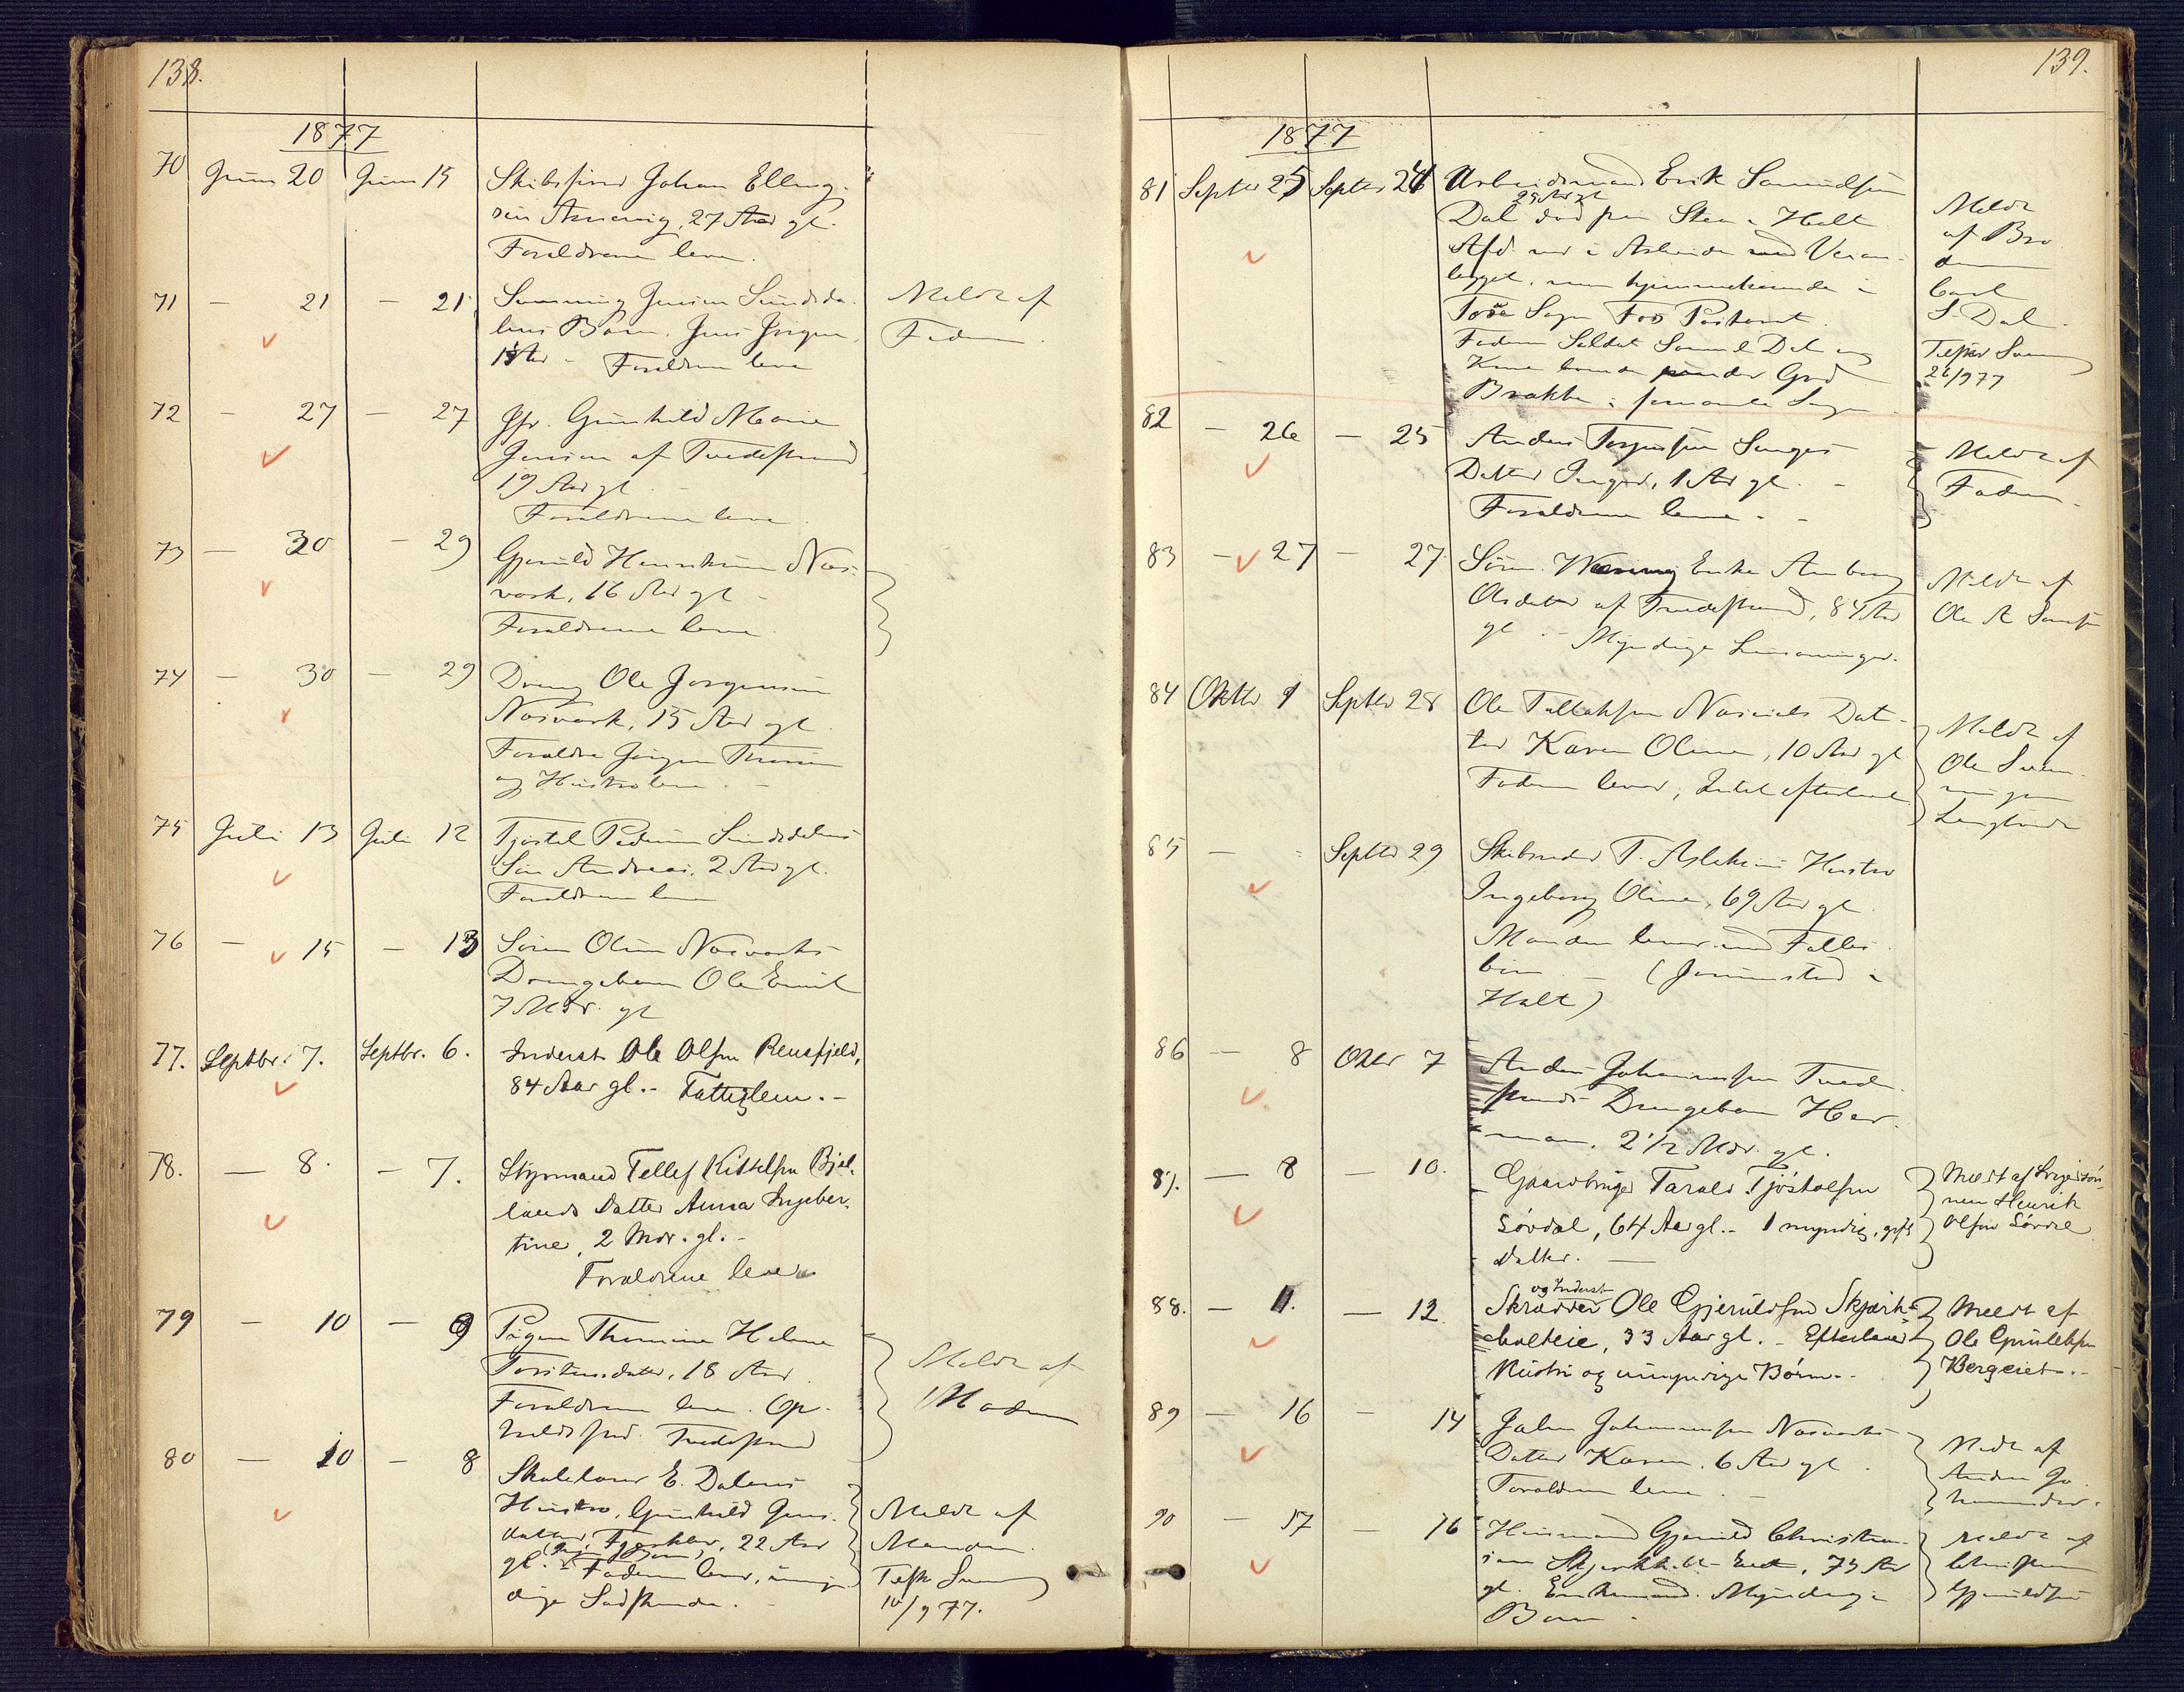 138.
1877
70 Juni 20 Juni 15 Skibsfører Johan Elling-
sen 27 Aar gl.
Forældrene leve.
71 — 21 — 21 Jensen Sundsda-
lens Barn, Jens Jørgen,
Aar - Forældrene leve
Meldt af
Faderen.
72 — 27 — 27 Gunhild Marie
Jensen af Tvedestrand
19 Aar gl. -
Forældrene leve.
73 — 30 — 29 Gjeruld Næs-
værk, 16 Aar gl -
Forældrene leve.
74 — 30 — 29 Dreng Ole Jørgensen
Næsværk, 15 Aar gl.
Forældre Jørgen
og Hustro leve. -
75 Juli 13 Juli 12 Pedersen Sundsdalens
Søn Andreas, 2 Aar gl.
Forældrene leve
76 — 15 — 13 Søren Olsen Næsværks
Drengebarn Ole Emil
7 Mdr. gl
77. Septbr. 7. Septbr. 6. Inderst Ole Olsen Rensfjeld,
84 Aar gl. - Fattiglem. -
78. — 8. — 7. Styrmand Tellef Kittelsen Bjel-
lands Datter Anna Ingeber-
tine, 2 Mdr. gl. -
Forældrene lever
79 — 10 — 9 Pigen Thomine Helene
Torstensdatter, 18 Aar
Forældrene leve. Op-
holdssted. Tvedestrand
Meldt af
Moderen
80 — 10 — 8 Skolelærer E. Dalens
Hustro, Gunhild Jens-
datter, 22 Aar
gl. - Faderen lever, umyn-
dige Sødskende. -
Meldt af
Manden.
10/9 77.
139.
1877
81 Septbr 25 Septbr 24 Arbeidsmand Erik Samuelsen
29 Aar gl
Dal død paa Sten i Holt
Afd. var i Arbeide ved Veian-
lægget, men hjemmehørende i
Sogn Fos Pastorat.
Faderen Soldat Samuel Dal og
Kone boende under Grd
Brække i samme Sogn
Meldt
af Bro
deren
S. Dal.
26/9 77
82 — 26 — 25 Anders Torjussen Songes
Datter Inger, 1 Aar gl. -
Forældrene leve. -
Meldt af
Faderen.
83 — 27 — 27. Søren Enke Anborg
Olsdatter af Tvedestrand, 84 Aar
gl. - Myndige Livsarvinger.
Meldt af
Ole A
84 Oktbr 1 Septbr 28 Ole Tallaksen Datt-
ter Karen Oline, 10 Aar gl
Faderen lever, Intet efterladt
Meldt af
Ole Svenn-
ingsen
85 — Septbr 29 Skibsreder T. Aslaksens Hustro
Ingeborg Oline, 69 Aar gl.
Manden lever med Fælles-
børn. — (Jorunnstad i
Holt)
86 — 8 Oktbr 7 Anders Johannessen Tvede-
strands Drengebarn Her-
man. 2 1/2 Mdr. gl.
87. — 8 — 10. Gaardbruger Tarald Tjøstolfsen
Søvdal, 64 Aar gl. - 1 myndig, gift
Datter. —
Meldt af Svigersøn-
nen Henrik
Olsen Søvdal
88. — 11. — 12. og Inderst
Skrædder Ole Gjeruldsen Skjærk-
holteie, 33 Aar gl. - Efterlader
Hustru og umyndige Børn. -
Meldt af
Ole
Bergeiet. -
89 — 16 — 14 Johannessen Næsværks
Datter Karen. 6 Aar gl.
Forældrene leve. -
Meldt af
Anders Jo-
hannessen.
90 — 17 — 16 Huusmand Gjeruld Christen-
sen Eiet, 75 Aar
gl. Enkemand. Myndige
Børn -
Meldt af
Gjeruldsen